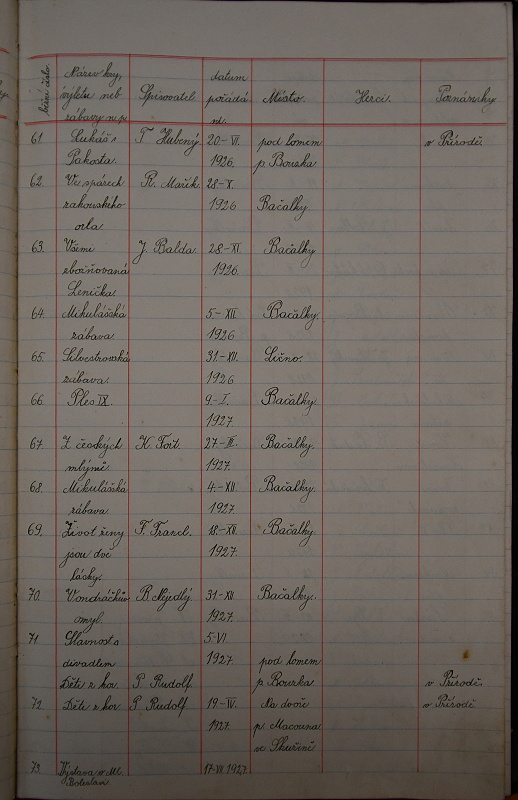 běžné číslo. Název hry, výletu neb zábavy n. p. Spisovatel datum pořádání. Místo. Herci. Poznámky
61. Lukáš a T. Hubený 20.-VI. pod lomem v Přírodě.
Pakosta. 1926. p. Bouzka.
62. Ve spárech R. Mařík. 28-X.
rakouského 1926 Bačalky.
orla
63. Všemi J. Balda. 28.-XI. Bačalky
zbožňovaná 1926.
Lenička.
64. Mikulášská 5.-XII. Bačalky.
zábava. 1926.
65. Silvestrovská 31.-XII. Lično.
zábava. 1926
66. Ples IX. 9.-I. Bačalky.
1927.
67. Z českých K. Fořt. 27.- Bačalky.
mlýnů. 1927.
68. Mikulášská 4.-XII. Bačalky
zábava 1927.
69. Život ženy F. Trancl. 18.-XII. Bačalky.
jsou dvě 1927.
lásky.
70. Vondráčkův B. Nejedlý 31.-XII Bačalky.
omyl. 1927.
71 Slavnost s 5.-VI.
divadlem 1927. pod lomem
Děti z kov. P. Rudolf. p. Bouzka v Přírodě.
72. Děti z kov. P. Rudolf. 19.-IV. Na dvoře v Přírodě
1927. p. Macouna
ve Skuřině
73. Výstava v Ml. 17-VII.1927.
Boleslavi